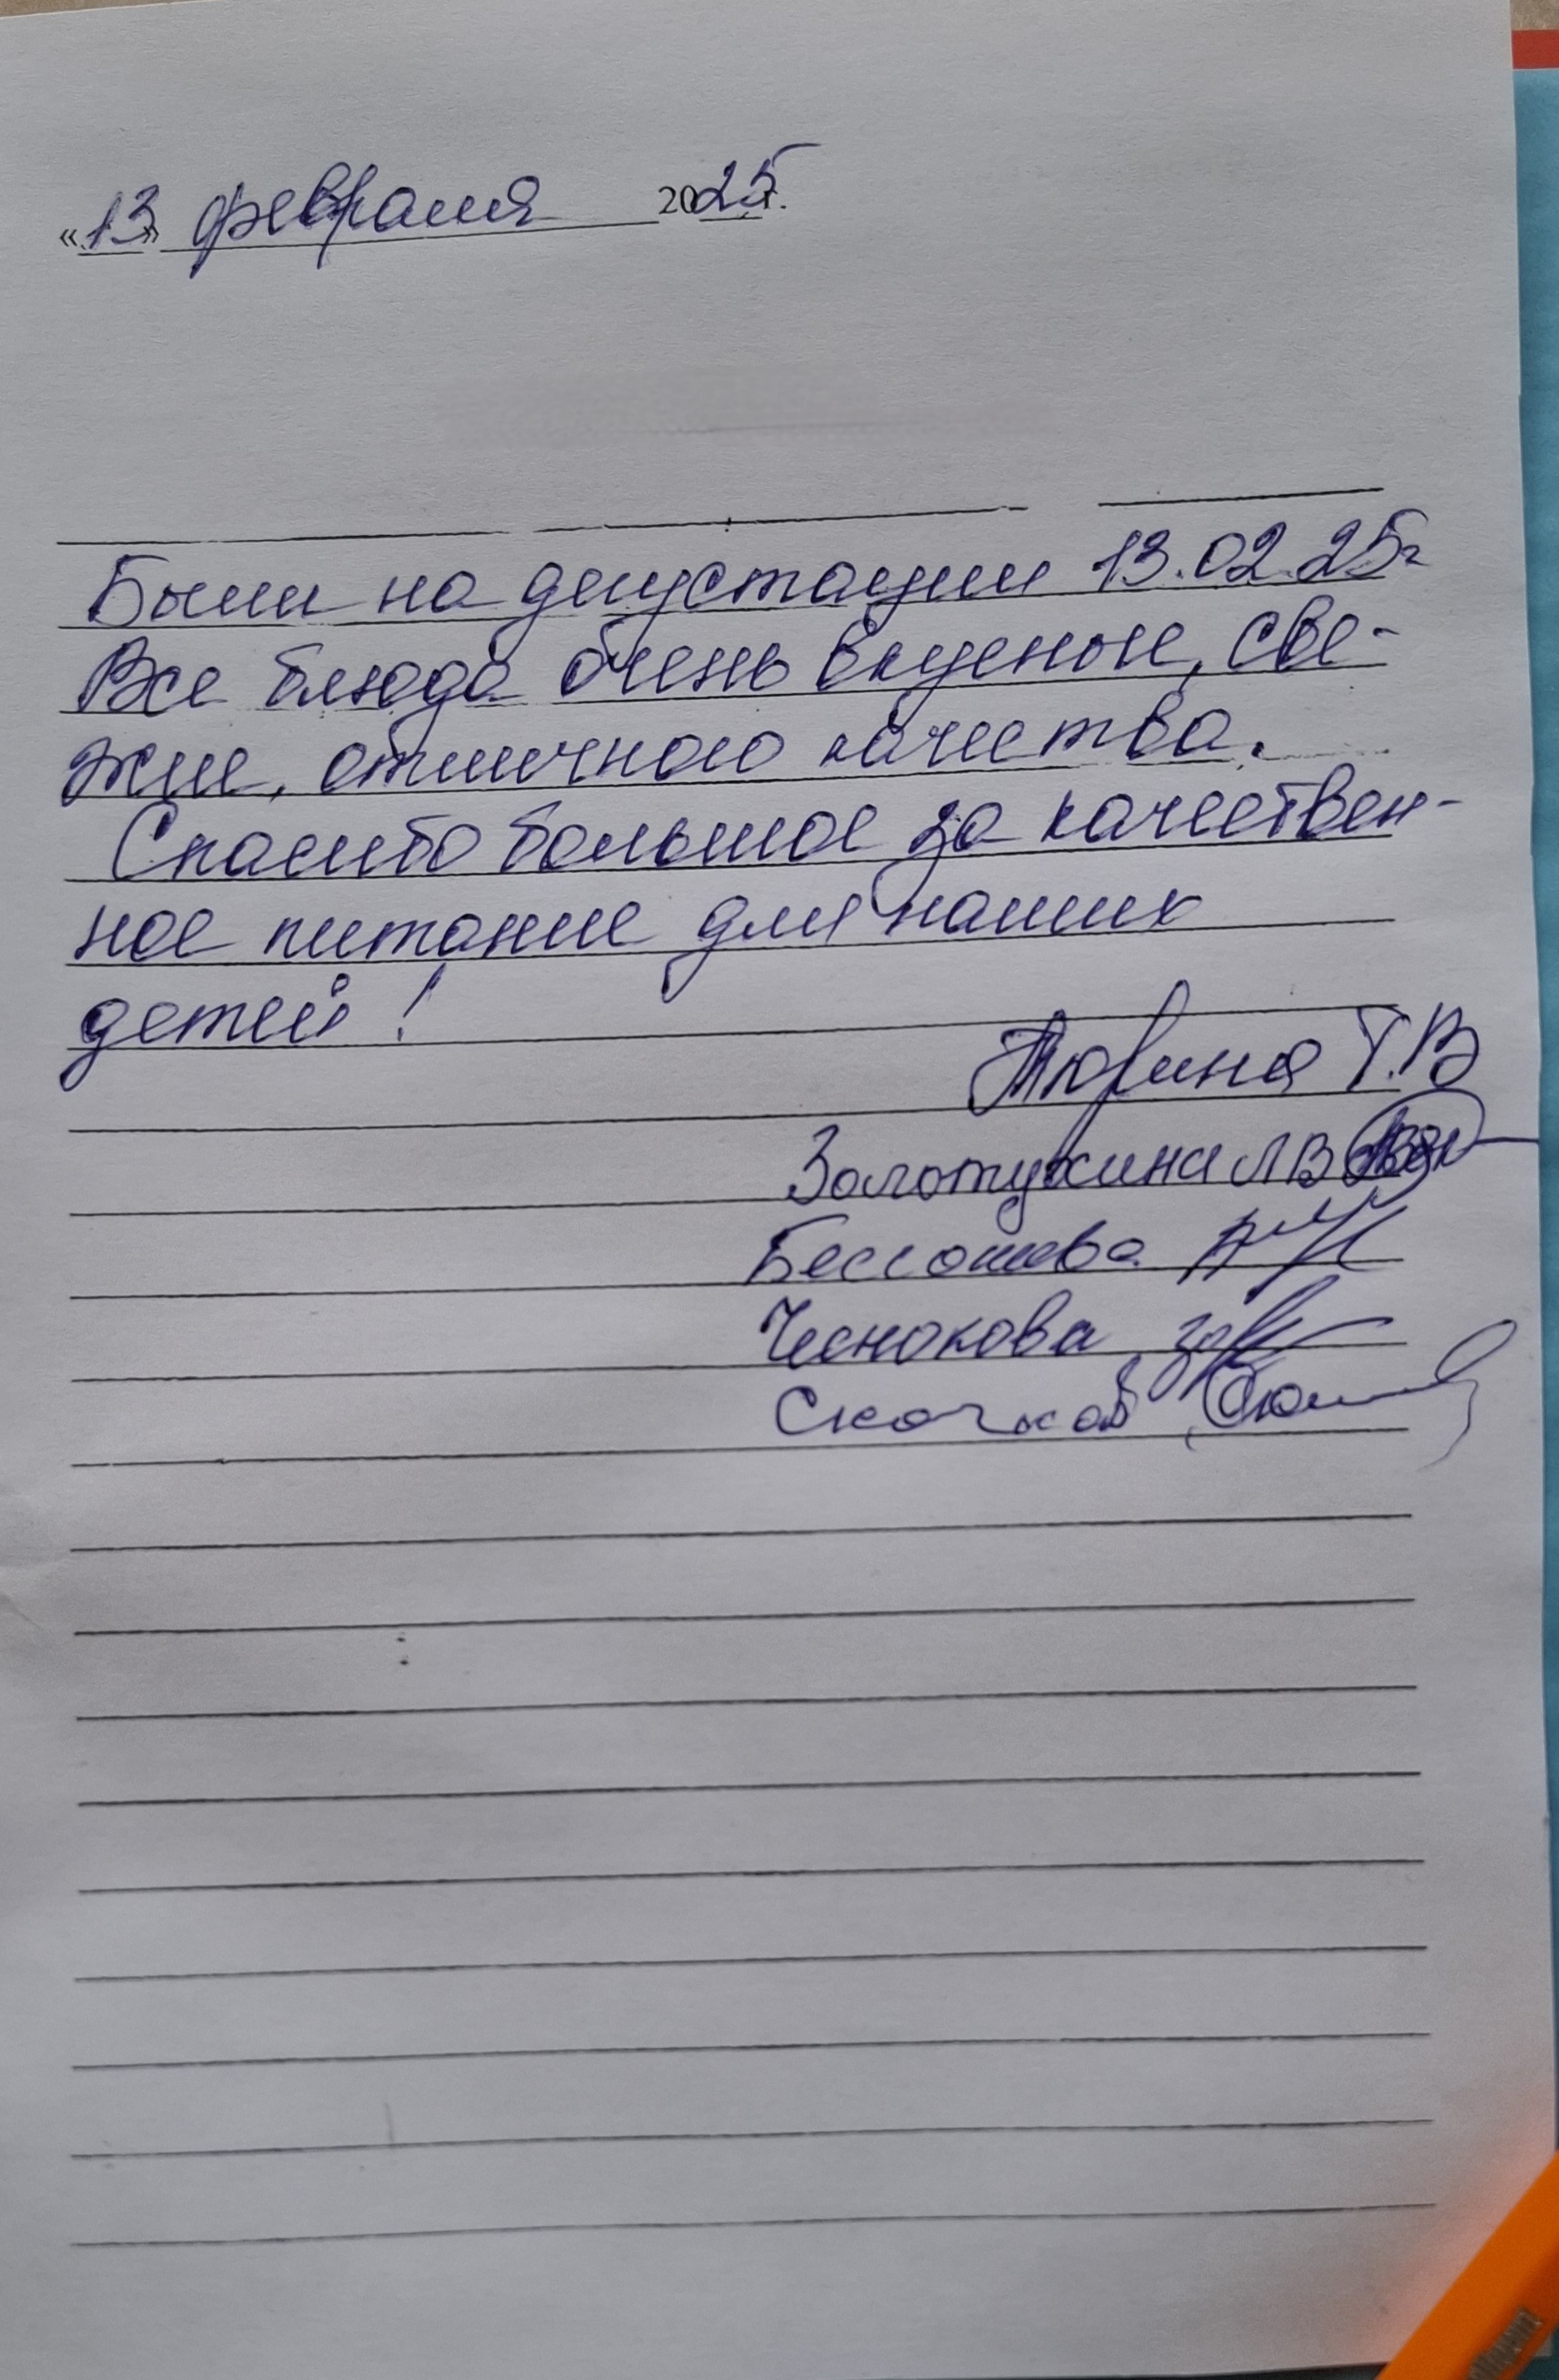 «13» февраля 2025г.
Были на дегустации 13.02.25г
Все блюда очень вкусные, све-
жие, отличного качества.
Спасибо большое за качествен-
ное питание для наших
детей!
Тюрина Т.В
Золотухина Л В
Чеснокова
Скочков